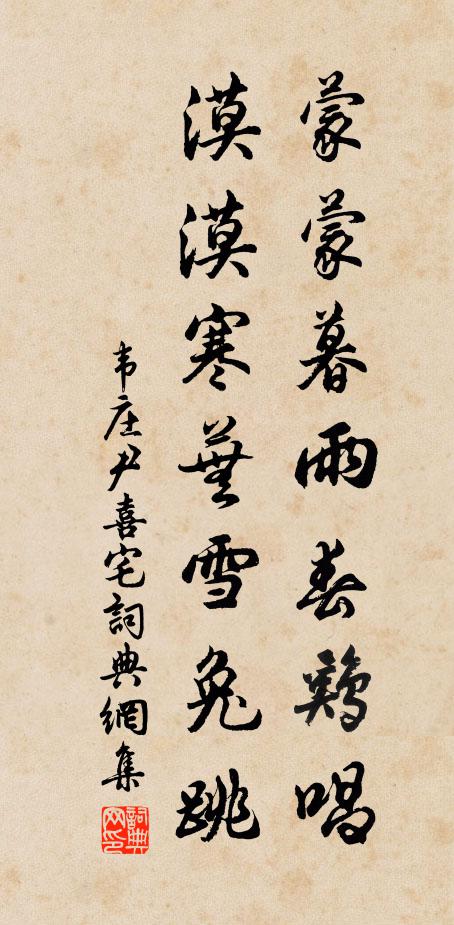 蒙蒙暮雨春鷄唱
漠漠寒蕪雪兔跳
韦庄尹喜宅詞典網集
詞典
网印